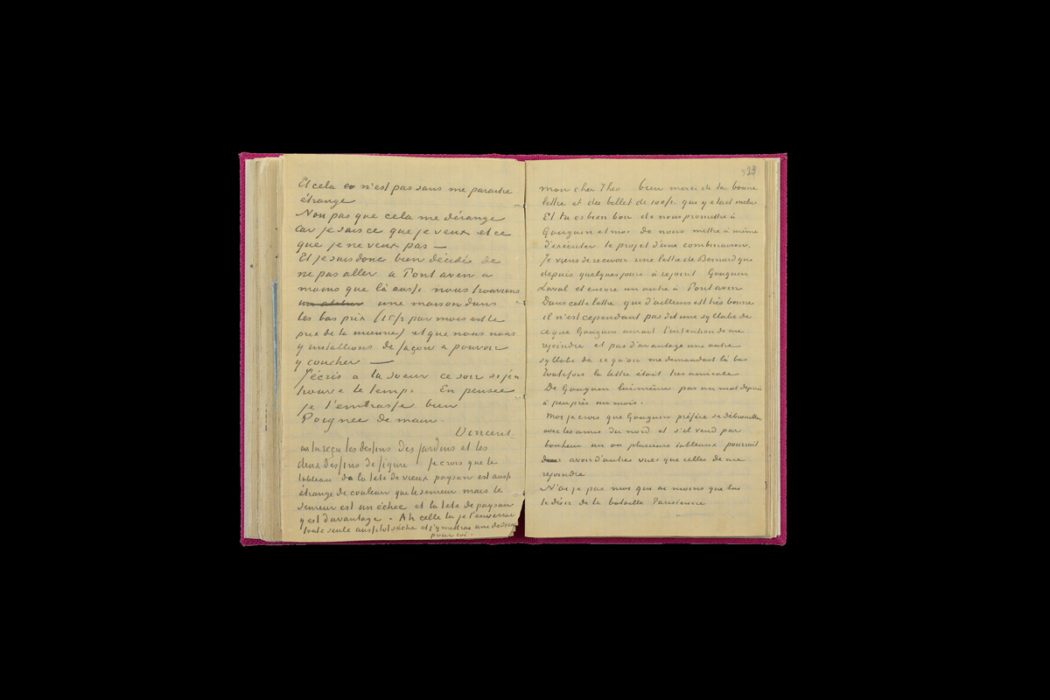 Et cela n'est pas sans me paraitre
étrange
Non pas que cela me dérange
Car je sais ce que je veux et ce
que je ne veux pas —
Et je suis donc bien décidé de
ne pas aller a Pont aven a
moins que là aussi nous trouvions
une maison dans
les bas prix (15f par mois est le
prix de la mienne) et que nous nous
y installions de façon a pouvoir
y coucher —
J'écris a la soeur ce soir si j'en
trouve le temps. En pensée
je t'embrasse bien
Poignee de main.
Vincent
as tu reçu les dessins des jardins et les
deux dessins de figure Je crois que le
tableau de la tete de vieux paysan est aussi
étrange de couleur que le semeur mais le
semeur est un échec et la tete de paysan
y est davantage. Ah celle la je l'enverrai
toute seule aussitot sèche et j'y mettrai une
pour toi.
23
mon cher Theo bien merci de ta bonne
lettre et du billet de 100fr. qui y etait inclus
Et tu es bien bon de nous promettre à
Gauguin et moi de nous mettre à même
d'executer le projet d'une combinaison.
Je viens de recevoir une lettre de Bernard qui
depuis quelques jours a rejoint Gauguin
Laval et encore un autre à Pont aven
Dans cette lettre qui d'ailleurs est très bonne
il n'est cependant pas dit une syllabe de
ce que Gauguin aurait l'intention de me
rejoindre et pas davantage une autre
syllabe de ce qu'on me demandait là bas
toutefois la lettre était tres amicale
De Gauguin lui même pas un mot depuis
à peu près un mois.
Moi je crois que Gauguin préfère se débrouiller
avec les amis du nord et s'il vend par
bonheur un ou plusieurs tableaux pourrait
avoir d'autres vues que celles de me
rejoindre
N'ai je pas moi qui ai moins que lui
le désir de la bataille Parisienne